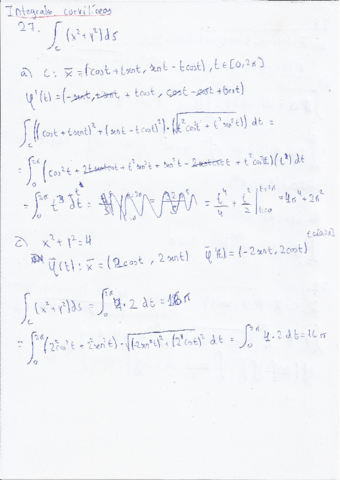 Integrales curvilíneas
27. ∫_C (x²+y²) ds
a) C: x̄ = (cost + tsent, sent - tcost), t ∈ [0, 2π]
φ'(t) = (-sent, + tcost, cost - cost + tsent)
∫_C ((cost + tsent)² + (sent - tcost)²) · (√(t²cos²t + t²sen²t)) dt =
= ∫₀^2π (cos²t + 2tsentcost + t²sen²t + sen²t - 2tsentcost + t²cos²t)(t) dt
= ∫₀^2π t³ + t dt = = t⁴/4 + t²/2 |_{t=0}^{t=2π} = 4π⁴ + 2π²
c) x² + y² = 4
φ̄(t): x̄ = (2cost, 2sent) φ̄'(t) = (-2sent, 2cost)
∫_C (x²+y²) ds = ∫₀^2π 4 · 2 dt = 16π
= ∫₀^2π (2²cos²t + 2²sen²t) · √((-2sent)² + (2cost)²) dt = ∫₀^2π 4 · 2 dt = 16π